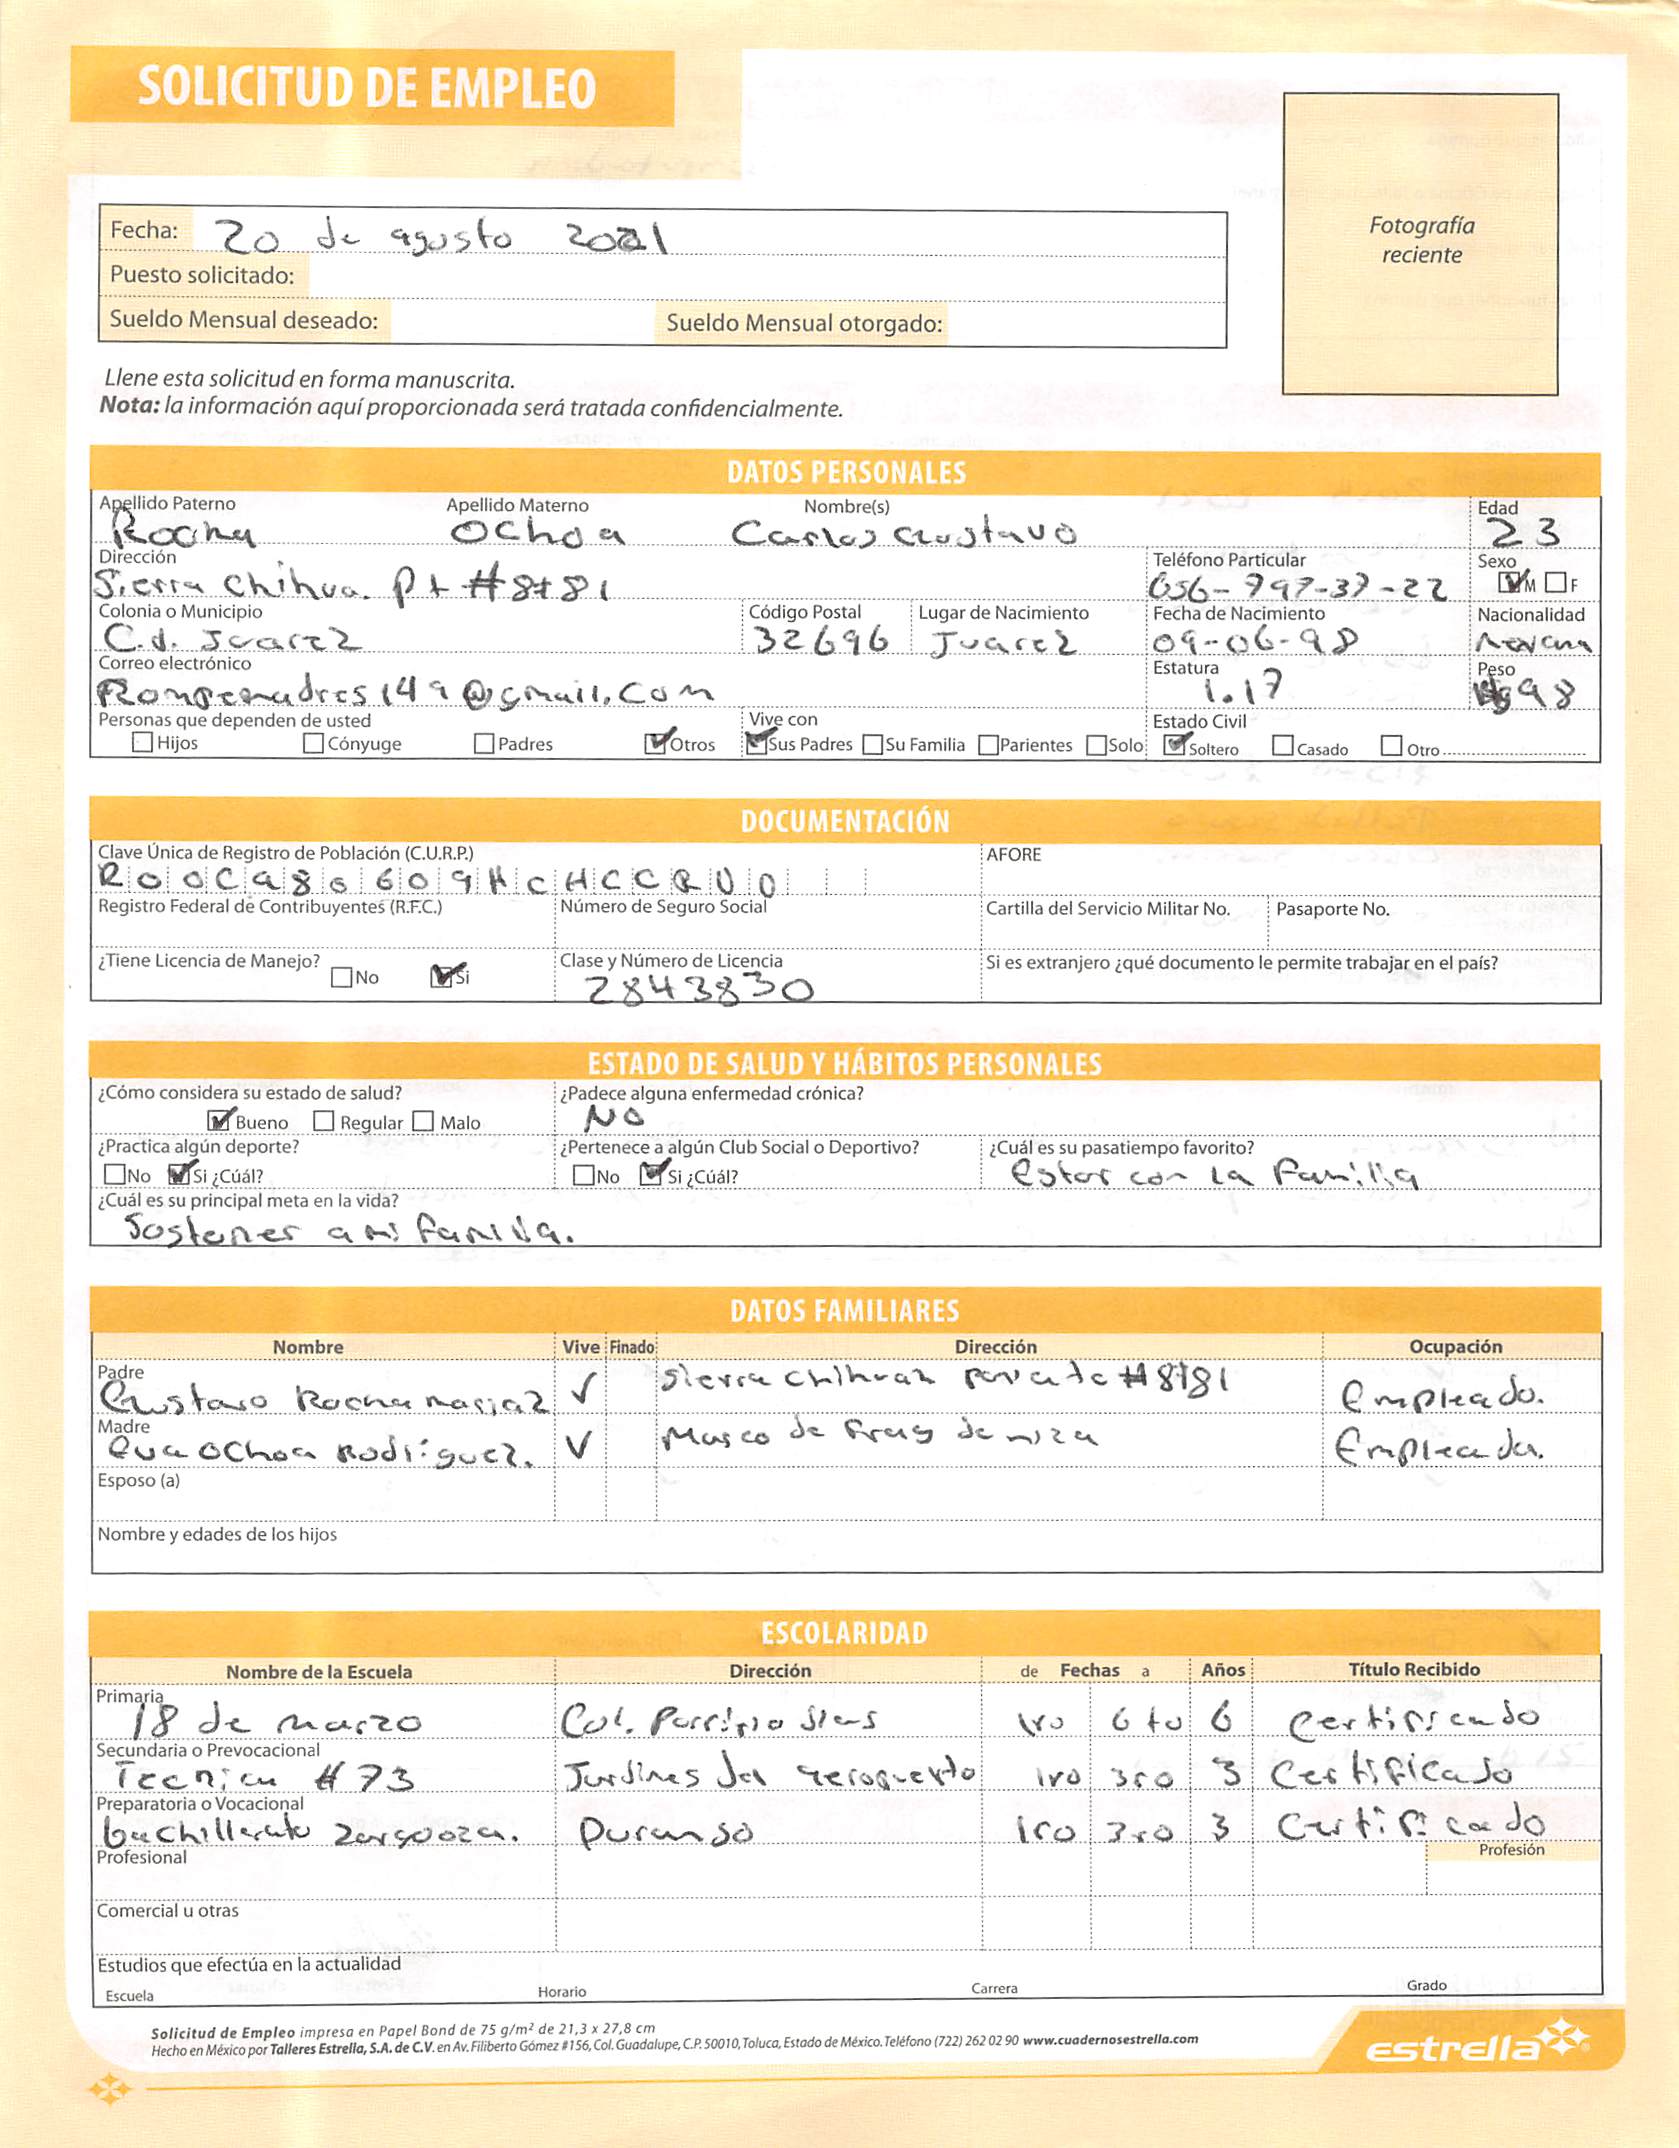 SOLICITUD DE EMPLEO
Fotografía
reciente
Fecha: 20 de agosto 2021
Puesto solicitado:
Sueldo Mensual deseado: Sueldo Mensual otorgado:
Llene esta solicitud en forma manuscrita.
Nota: la información aquí proporcionada será tratada confidencialmente.
DATOS PERSONALES
Apellido Paterno Apellido Materno Nombre(s) Edad
Rocha Ochoa Carlos Gustavo 23
Dirección Teléfono Particular Sexo
Sierra Chihua. Pt #8181 656-797-37-22 M F
Colonia o Municipio Código Postal Lugar de Nacimiento Fecha de Nacimiento Nacionalidad
C.d. Juarez 32696 Juarez 09-06-98 Mexicana
Correo electrónico Estatura Peso
Rompemadres149@gmail.com 1.17 98
Personas que dependen de usted Vive con Estado Civil
Hijos Cónyuge Padres Otros Sus Padres Su Familia Parientes Solo Soltero Casado Otro
DOCUMENTACIÓN
Clave Única de Registro de Población (C.U.R.P.) AFORE
ROOCA980609HCHCCRU0
Registro Federal de Contribuyentes (R.F.C.) Número de Seguro Social Cartilla del Servicio Militar No. Pasaporte No.
¿Tiene Licencia de Manejo? No Si Clase y Número de Licencia Si es extranjero ¿qué documento le permite trabajar en el país?
2843830
ESTADO DE SALUD Y HÁBITOS PERSONALES
¿Cómo considera su estado de salud? ¿Padece alguna enfermedad crónica?
Bueno Regular Malo NO
¿Practica algún deporte? ¿Pertenece a algún Club Social o Deportivo? ¿Cuál es su pasatiempo favorito?
No Si ¿Cúál? No Si ¿Cúál? Estar con la familia
¿Cuál es su principal meta en la vida?
Sostener a mi familia.
DATOS FAMILIARES
Nombre Vive Finado Dirección Ocupación
Padre
Gustavo Rocha Sierra chihuah #8181 Empleado.
Madre
Eva Ochoa Rodríguez. Museo de Fray de niza Empleada.
Esposo (a)
Nombre y edades de los hijos
ESCOLARIDAD
Nombre de la Escuela Dirección de Fechas a Años Título Recibido
Primaria
18 de marzo Col. 1ro 6to 6 Certificado
Secundaria o Prevocacional
Tecnica #73 Jardines del aeropuerto 1ro 3ro 3 Certificado
Preparatoria o Vocacional
bachillerato Zaragoza. Durango 1ro 3ro 3 Certificado
Profesional Profesión
Comercial u otras
Estudios que efectúa en la actualidad
Escuela Horario Carrera Grado
Solicitud de Empleo impresa en Papel Bond de 75 g/m² de 21,3 x 27,8 cm
Hecho en México por Talleres Estrella, S.A. de C.V. en Av. Filiberto Gómez #156, Col. Guadalupe, C.P. 50010, Toluca, Estado de México. Teléfono (722) 262 02 90 www.cuadernosestrella.com
estrella